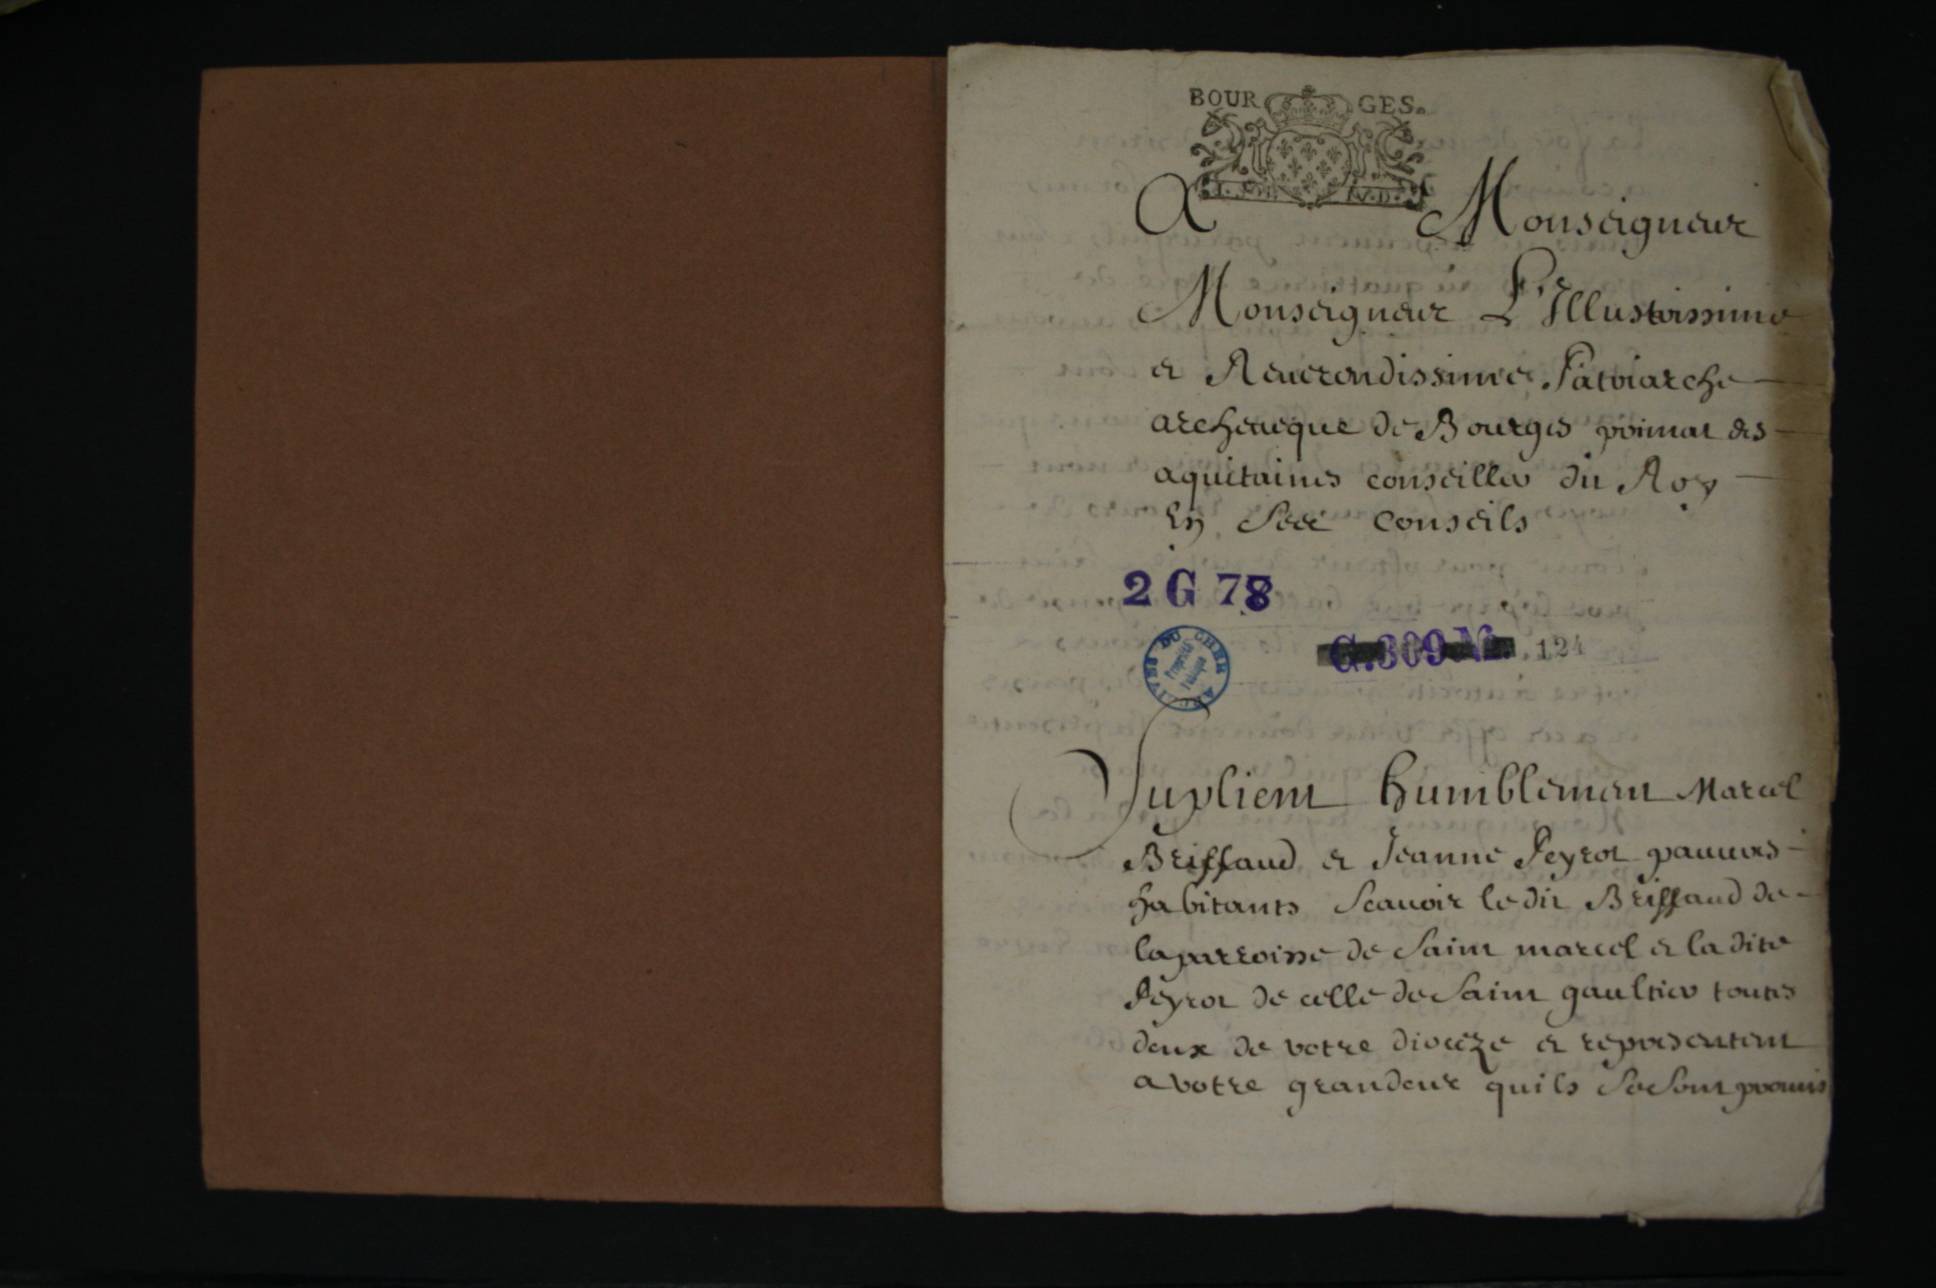 BOURGES.
A Monseigneur
Monseigneur L'Illustrissime
et Reuerendissime Patriarche
archeueque de Bourges primat des
aquitaines conseiller du Roy
En Ses Conseils
2 G 78
G.309 124
ARCHIVES DU CHER
Propriété
Publique
Suplient humblement Marcel
Briffaud et Jeanne Peyrot pauures
habitants Scauoir ledit Briffaud de
laparroisse de Saint marcel et la dite
Peyrot de celle de Saint gaultier toutes
deux de votre diocèze et representent
a votre grandeur quils Se Sont promis